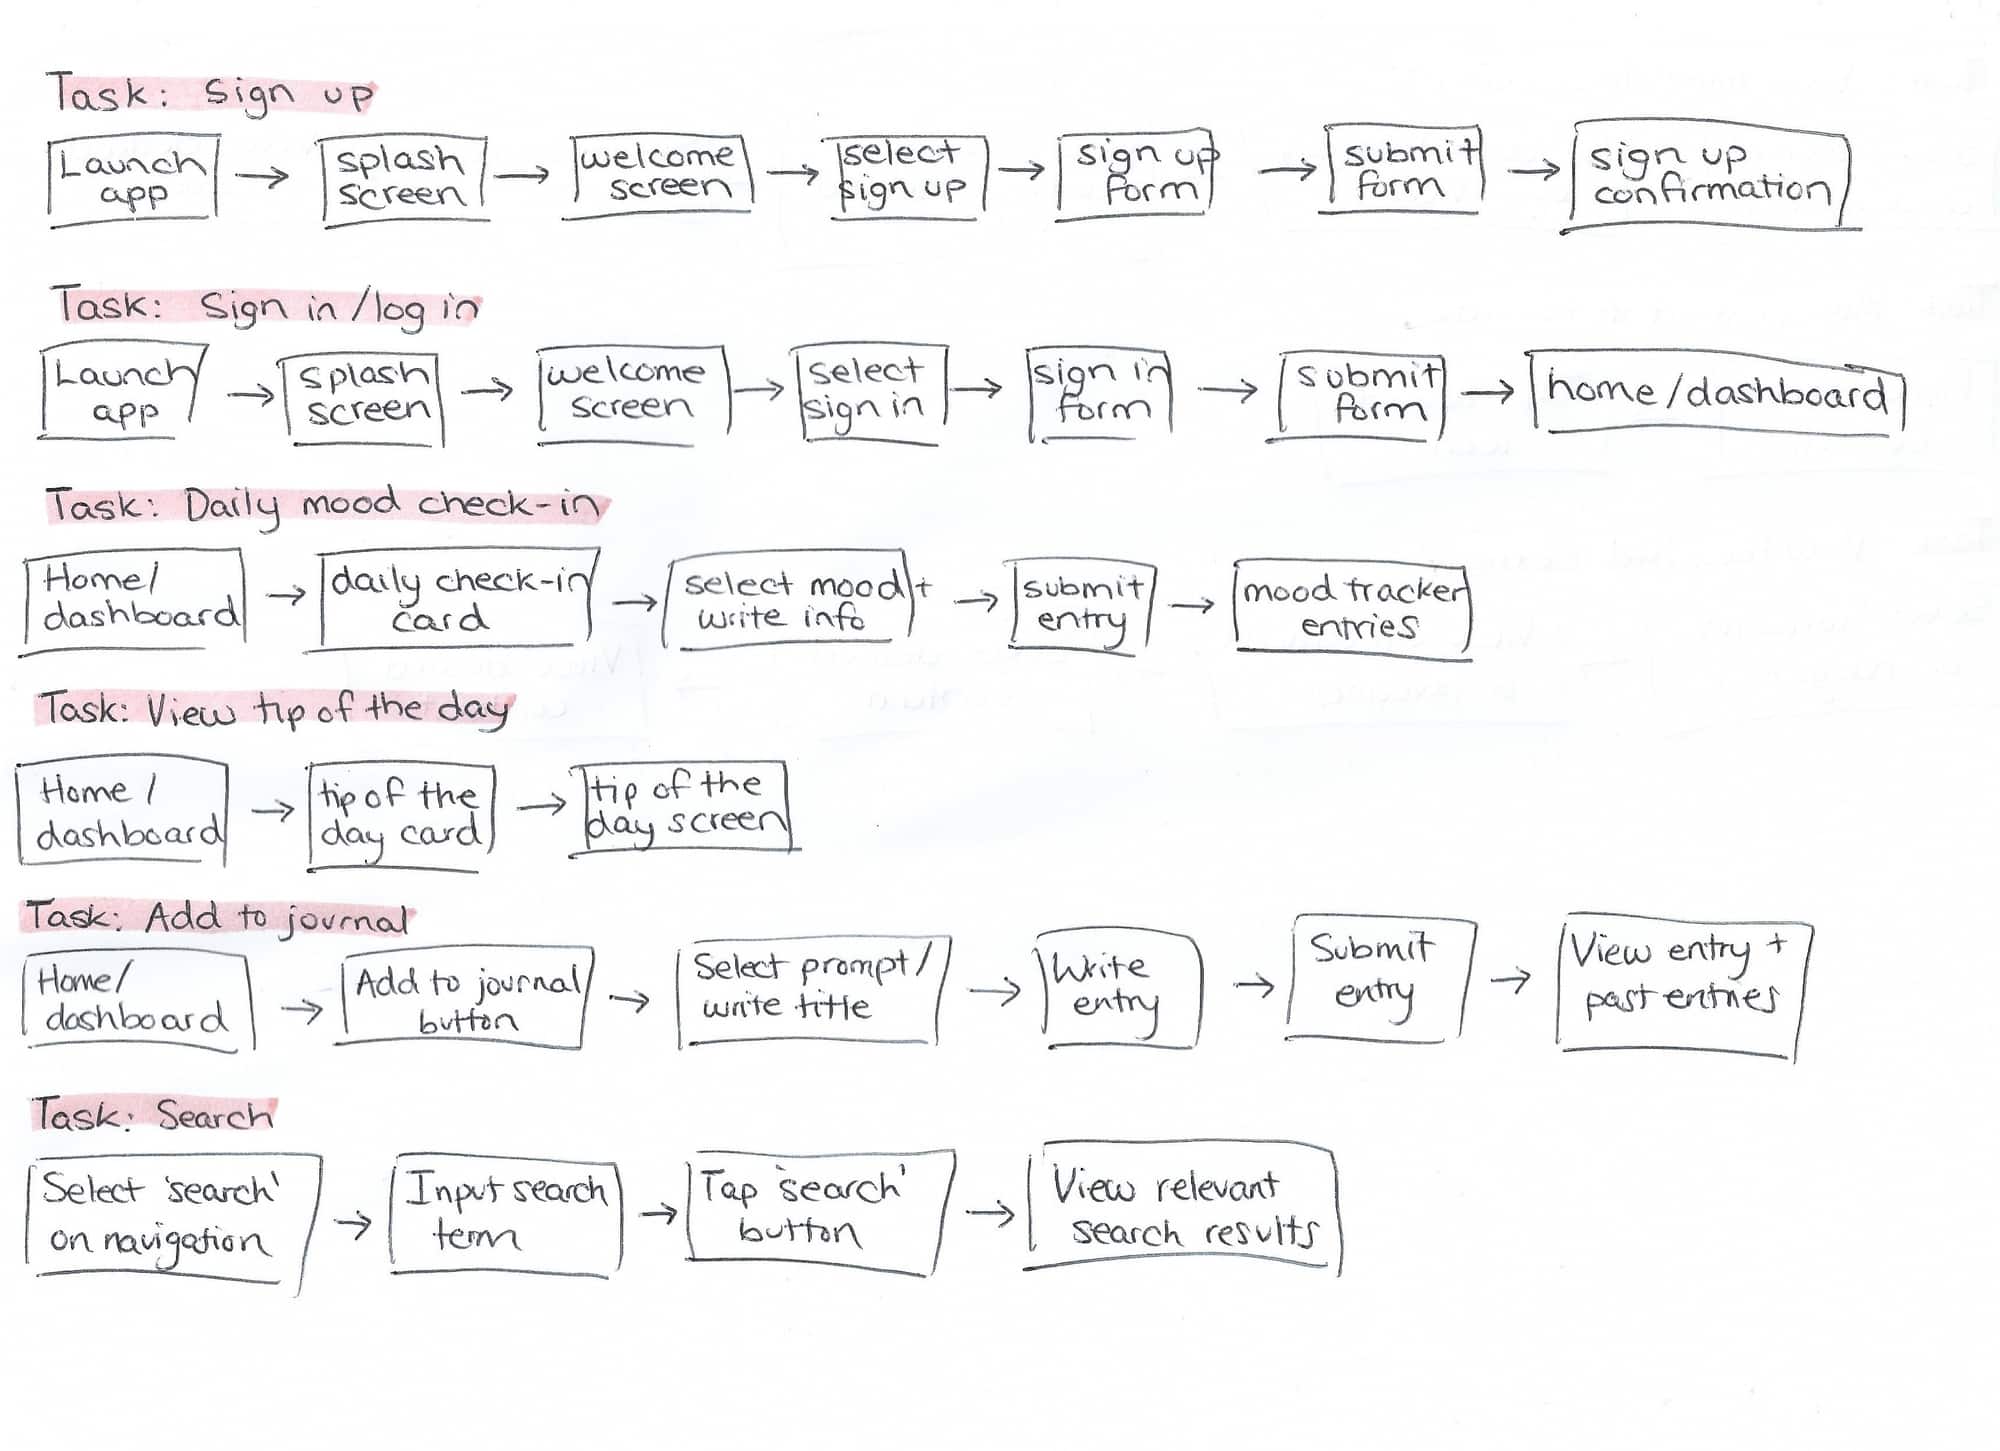 Task: Sign up
Launch app
splash screen
welcome screen
select sign up
sign up form
submit form
sign up confirmation
Task: Sign in/log in
Launch app
splash screen
welcome screen
select sign in
sign in form
submit form
home/dashboard
Task: Daily mood check-in
Home/ dashboard
daily check-in card
select mood + write info
submit entry
mood tracker entries
Task: View tip of the day
Home/ dashboard
tip of the day card
tip of the day screen
Task: Add to journal
Home/ dashboard
Add to journal button
Select prompt/ write title
Write entry
Submit entry
View entry + past entries
Task: Search
Select 'search' on navigation
Input search term
Tap 'search' button
View relevant search results